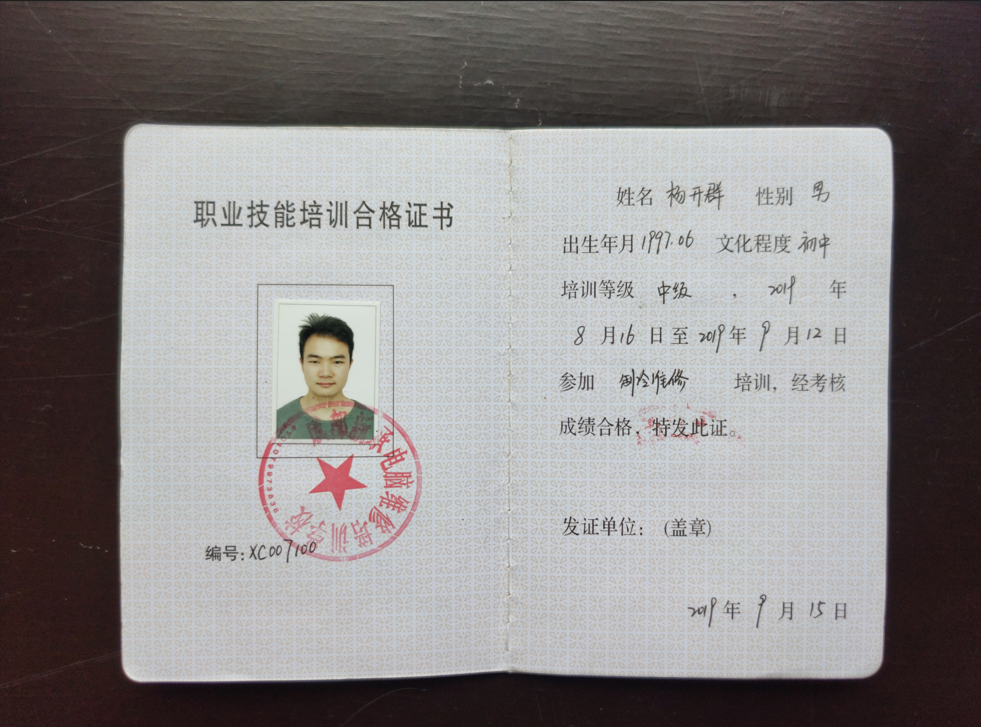 职业技能培训合格证书
电脑维修培训学校
编号:XC007100
姓名 杨开群 性别 男
出生年月1997.06 文化程度 初中
培训等级 中级 , 2019 年
8 月16 日至 2019年 9 月12日
参加 制冷维修 培训,经考核
成绩合格,特发此证。
发证单位: (盖章)
2019年 9 月 15日